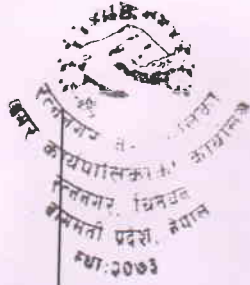 रत्ननगर
नगर कार्यपालिकाको कार्यालय
रत्ननगर, चितवन
बागमती प्रदेश, नेपाल
स्था:२०७३